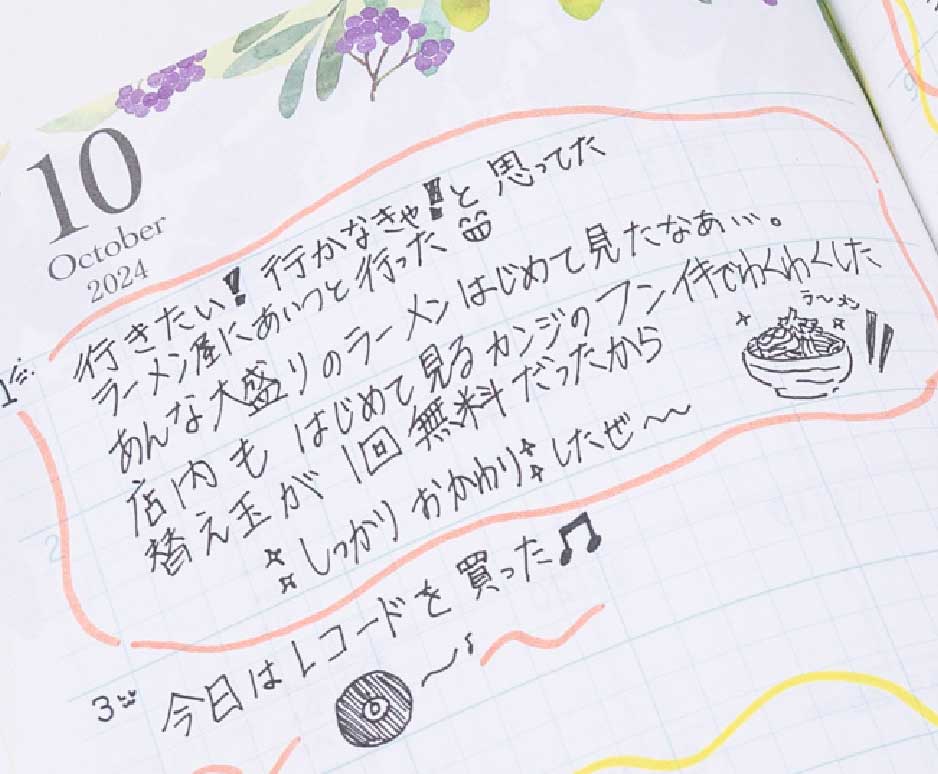 10
October
2024
1
行きたい！行かなきゃ！と思ってた
ラーメン屋にあいつと行った
あんな大盛りのラーメンはじめて見たなあ…。
店内もはじめて見るカンジのフン件でわくわくした
ラ〜メン
替え玉が1回無料だったから
しっかりおかわりしたぜ〜
2
3 今日はレコードを買った♫